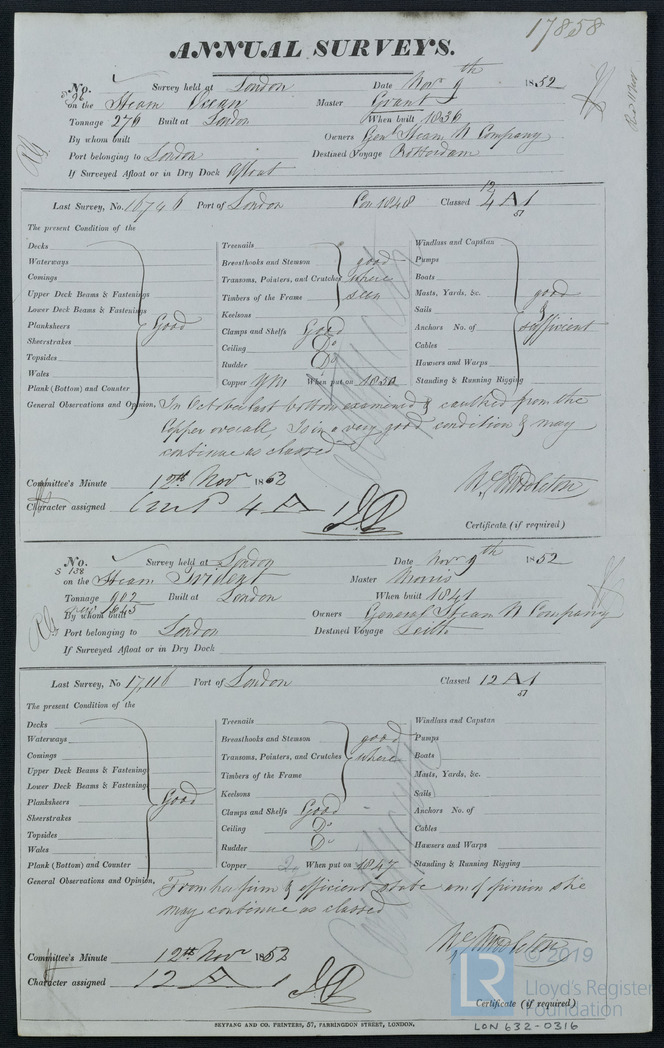 17858
ANNUAL SURVEYS.
No. Survey held at London Date Novr 9th 1852
on the Steam Ocean Master Grant
Tonnage 276 Built at London When built 1836
By whom built Owners Genl Steam N Company
Port belonging to London Destined Voyage Rotterdam
If Surveyed Afloat or in Dry Dock Afloat
Last Survey, No. 16746 Port of London Con 1848 Classed 4 A 1
51
The present Condition of the
Decks
Waterways
Comings
Upper Deck Beams & Fastenings
Lower Deck Beams & Fastenings
Planksheers Good
Sheerstrakes
Topsides
Wales
Plank (Bottom) and Counter
Treenails
Breasthooks and Stemson good
Transoms, Pointers, and Crutches where
Timbers of the Frame seen
Keelsons
Clamps and Shelfs Good
Ceiling Do
Rudder Do
Copper YM When put on 1850
Windlass and Capstan
Pumps
Boats
Masts, Yards, &c. good
Sails &
Anchors No. of sufficient
Cables
Hawsers and Warps
Standing & Running Rigging
General Observations and Opinion, In October last bottom examined & caulked from the
Copper overall Is in a very good condition & may
continue as classed
Committee's Minute 12th Novr 1852
W. Middleton
Character assigned 4 A 1
Certificate (if required)
No. Survey held at London Date Novr 9th 1852
S 138
on the Steam Trident Master Morris
Tonnage 902 Built at London When built 1841
By whom built Owners General Steam N Company
Port belonging to London Destined Voyage Leith
If Surveyed Afloat or in Dry Dock
Last Survey, No 17116 Port of London Classed 12 A 1
51
The present Condition of the
Decks
Waterways
Comings
Upper Deck Beams & Fastening
Lower Deck Beams & Fastening
Planksheers Good
Sheerstrakes
Topsides
Wales
Plank (Bottom) and Counter
Treenails
Breasthooks and Stemson good
Transoms, Pointers, and Crutches where
Timbers of the Frame
Keelsons
Clamps and Shelfs Good
Ceiling Do
Rudder Do
Copper When put on 1847
Windlass and Capstan
Pumps
Boats
Masts, Yards, &c.
Sails
Anchors No. of
Cables
Hawsers and Warps
Standing & Running Rigging
General Observations and Opinion, From her firm & efficient state am of opinion she
may continue as classed
W. Middleton
Committee's Minute 12th Novr 1852
Character assigned 12 A 1
Certificate (if required)
SKYFANG AND CO. PRINTERS, 57, FARRINGDON STREET, LONDON.
LON 632-0316
LR © 2019
Lloyd's Register
Foundation